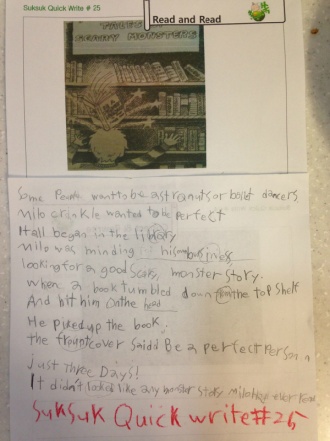 Suksuk Quick Write # 25
Read and Read
THREE
SCARY MONSTERS
Some People want to be astranuts or balet dancers
Milo crinkle wanted to be Perfect
It all began in the library
Milo was minding his own busines
looking for a good scary monster story.
when a book tumbled down from the top shelf
And hit him on the head
He picked up the book.
the frount cover said Be a perfect Person in
just Three Days!
It didn't look like any monster story Milo had ever
Suksuk Quick write #25